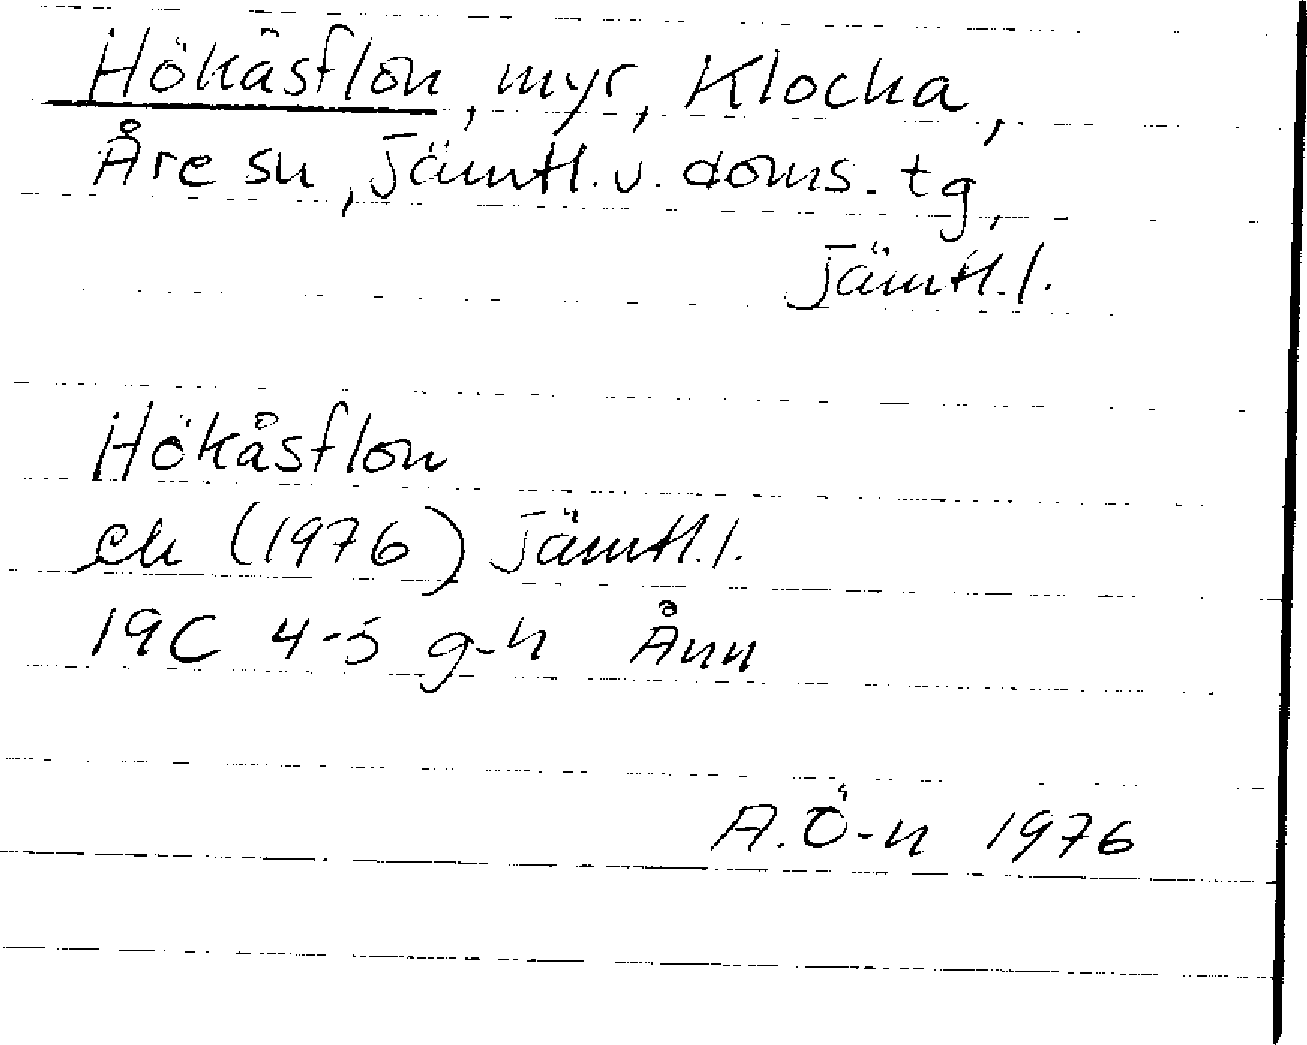 Hökåsflon, myr, Klocka,
Åre sn, Jämtl. v. doms. tg,
Jämtl. l.
Hökåsflon
ek (1976) Jämtl. l.
19C 4-5 g-h Ånn
A. Ö-n 1976